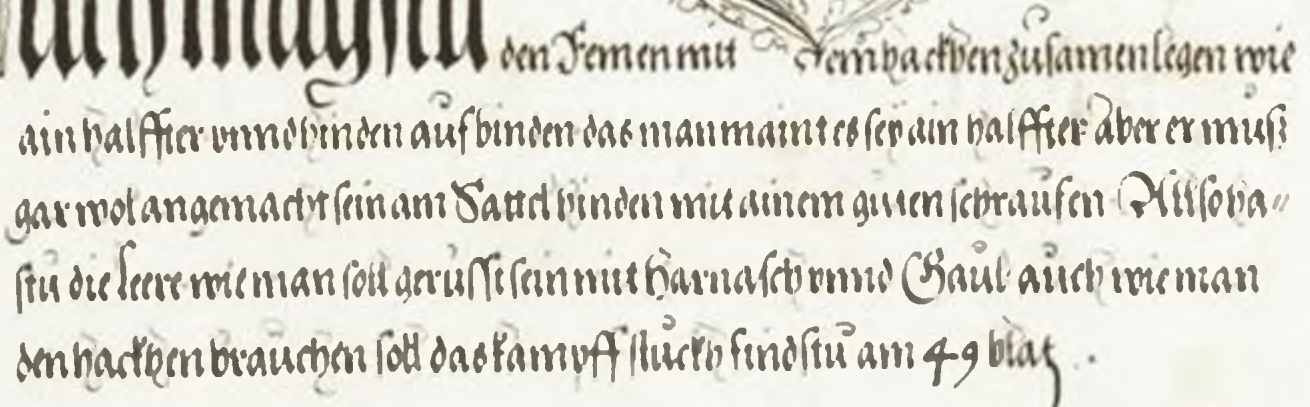 Auch magstu den Remen mitt dem hackhen zusamen legen wie
ain halffter vnnd hinden aufbinden das man maint es seÿ ain halffter Aber er mus̈
gar wol angemacht sein am Sattel hinden mit ainem guten schraufen Allso ha=
stu die leere wie man soll gerüsst sein mit Harnasch vnnd Gaul auch wie man
den hackhen brauchen soll das kampff stuckh findstu am 49 blat .